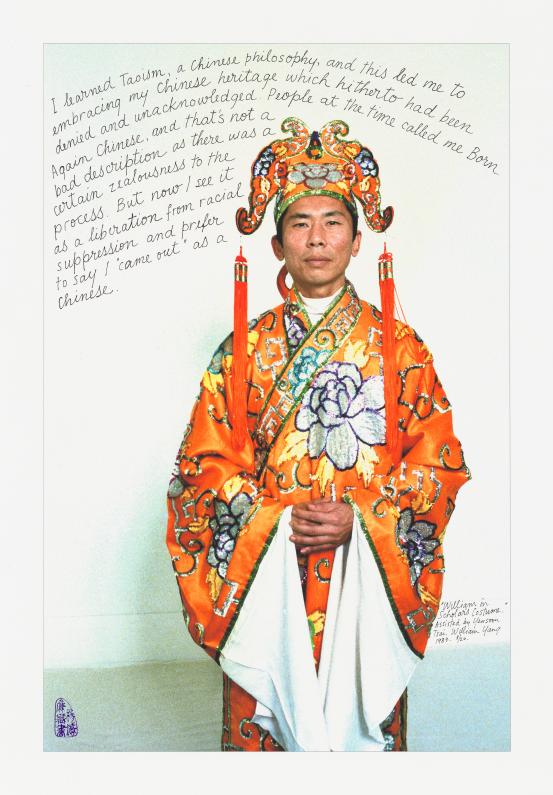 I learned Taoism, a Chinese philosophy, and this led me to
embracing my Chinese heritage which hitherto had been
denied and unacknowledged. People at the time called me Born
Again Chinese, and that's not a
bad description as there was a
certain zealousness to the
process. But now I see it
as a liberation from racial
suppression and prefer
to say I "came out" as a
Chinese.
"William in
Scholars Costume."
Assisted by Yensoon
Tsai. William Yang